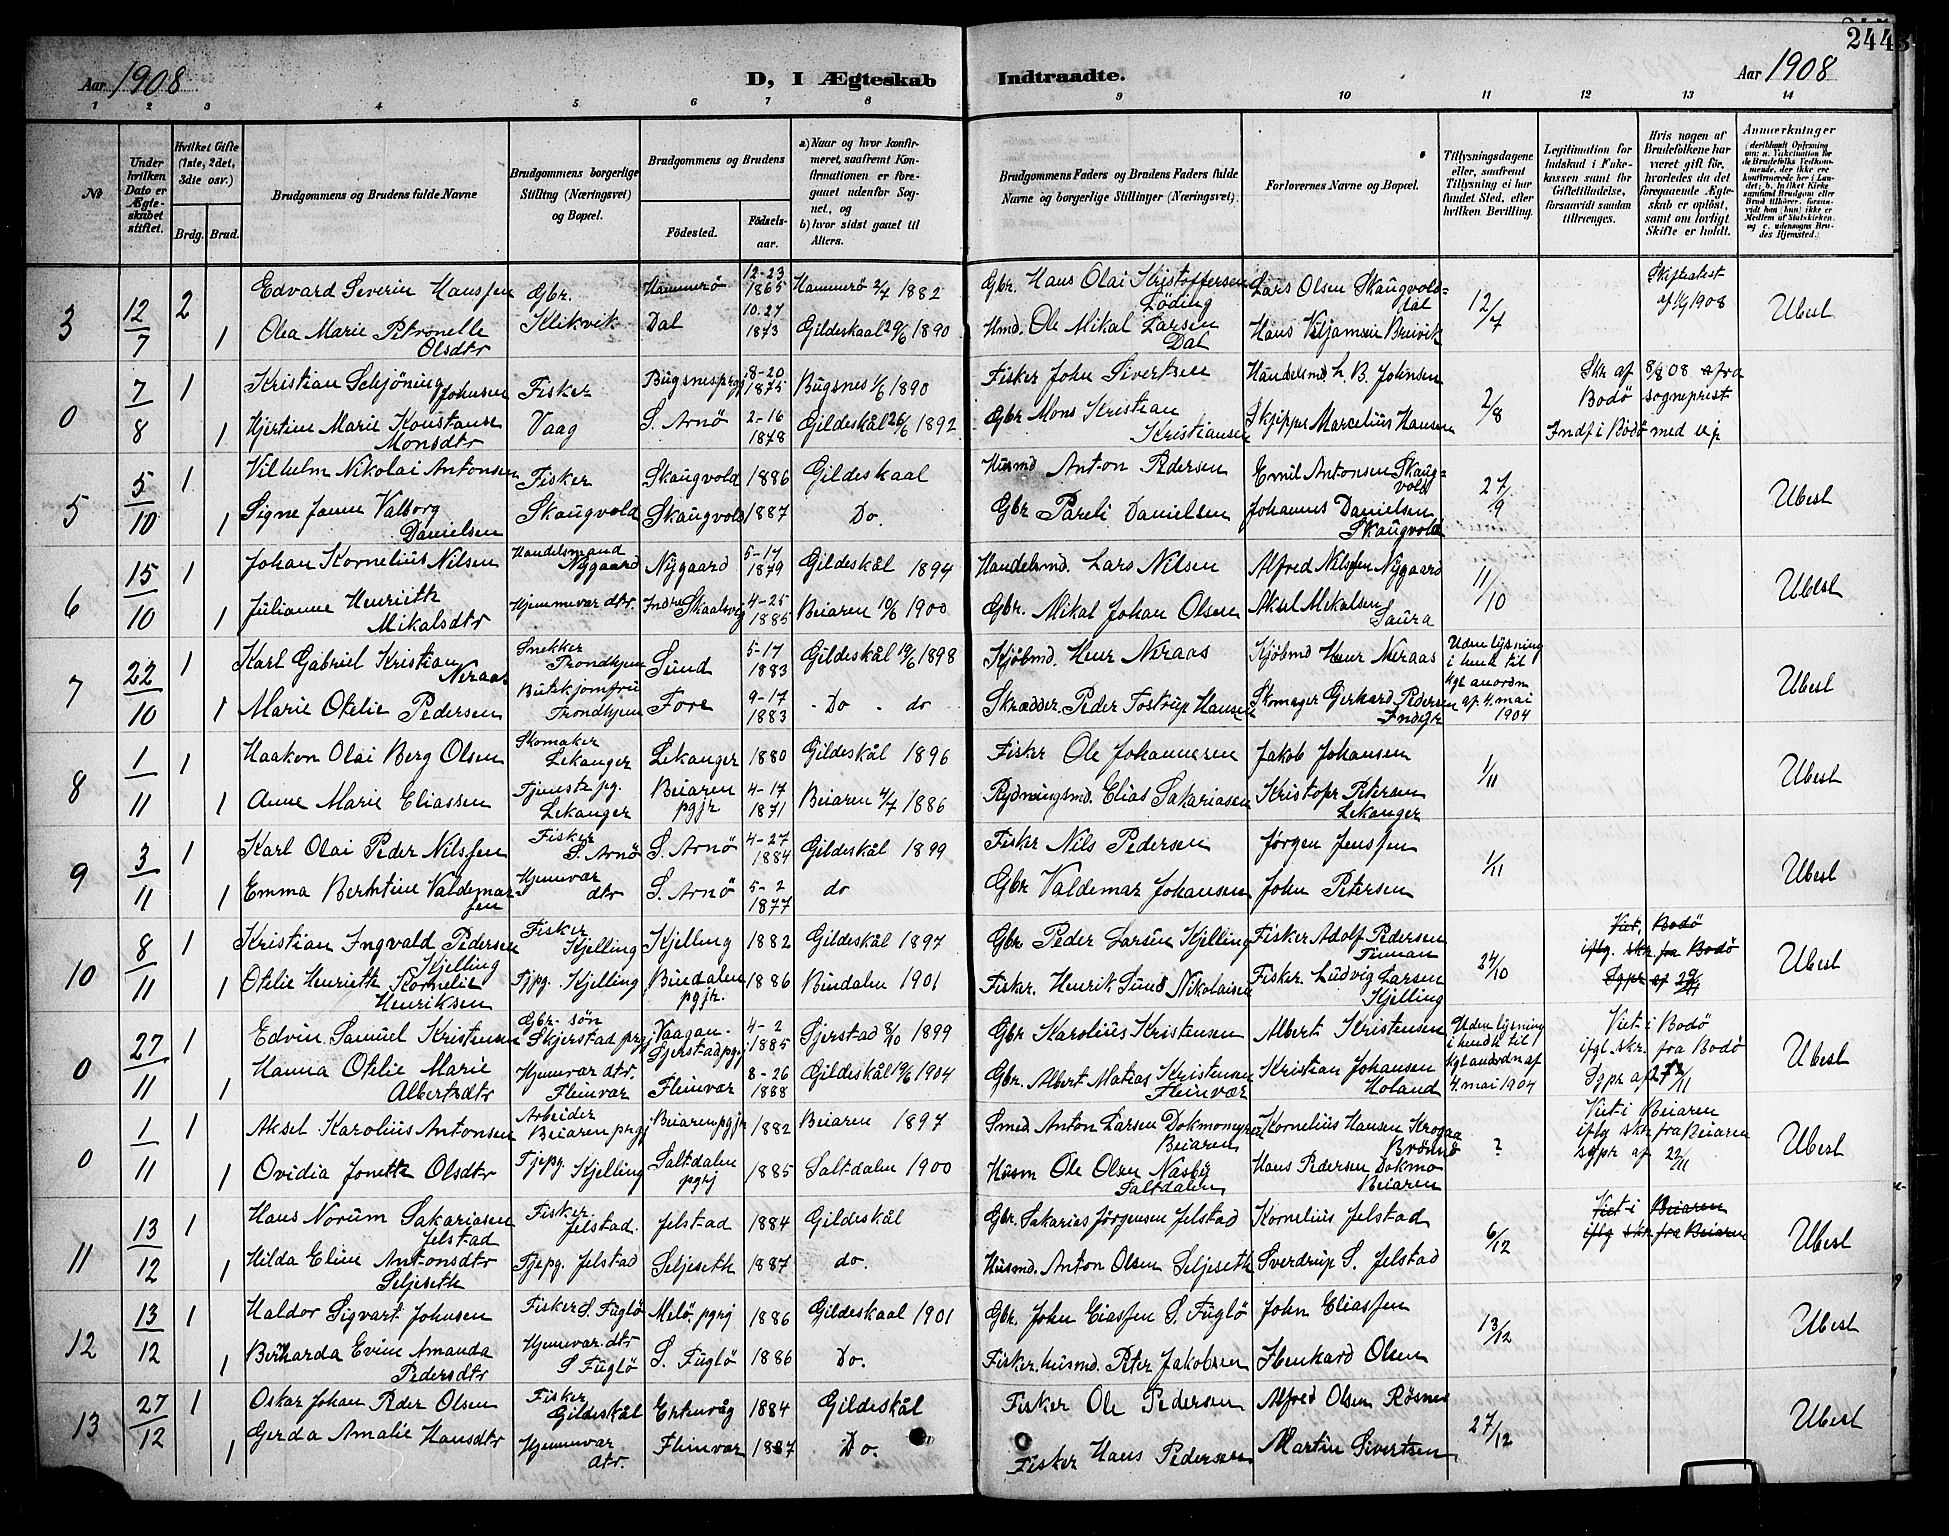 244
Aar 1908
D, I Ægteskab Indtraadte.
Aar 1908
1 2 3 4 5 6 7 8 9 10 11 12 13 14
No
Under hvilken Dato er Ægteskabet stiftet.
Hvilket Gifte (1ste, 2det, 3die osv.)
Brdg. Brud.
Brudgommens og Brudens fulde Navne
Brudgommens borgerlige Stilling (Næringsvei) og Bopæl.
Brudgommens og Brudens
Födested.
Födsels-aar.
a) Naar og hvor konfirmeret, saafremt Konfirmationen er foregaaet udenfor Sognet, og
b) hvor sidst gaaet til Alters.
Brudgommens Faders og Brudens Faders fulde Navne og borgerlige Stillinger (Næringsvei).
Forlovernes Navne og Bopæl.
Tillysningsdagene eller, saafremt Tillysning ei har fundet Sted, efter hvilken Bevilling.
Legitimation for Indskud i Enkekassen samt for Giftetilladelse, forsaavidt saadan tiltrænges.
Hvis nogen af Brudefolkene har været gift för, hvorledes da det foregaaende Ægteskab er oplöst, samt om lovligt Skifte er holdt.
Anmerkninger
3 12/7 2 Edvard Severin Hanssen Gbr. Klikvik Hammerø 12-23 1865 Hammerø 2/7 1882 Gbr. Hans Olai Kristoffersen Løding Lars Olsen Skaugvold-dal 12/7 Skifteatest af 1/9 1908 Ubesl
1 Olea Marie Petronelle Olsdtr Dal 10-27 1873 Gildeskaal 29/6 1890 Hmd. Ole Mikal Larsen Dal Hans Viljamsen Breivik
0 7/8 1 Kristian Schjöning Johnsen Fisker Bugsnes prgj 8-20 1875 Bugsnes 1/6 1890 Fisker John Sivertsen Handelsmd. L. B. Johnsen 2/8 Skr af 8/8 08 fra Bodö sogneprest
1 Hjertine Marie Konstanse Monsdtr Vaag S. Arnö 2-16 1878 Gildeskål 26/6 1892 Gbr Mons Kristian Kristiansen Skipper Marcelius Hansen Indf i Bodö med vp
5 5/10 1 Vilhelm Nikolai Antonsen Fisker Skaugvold 1886 Gildeskaal Husmd Anton Pedersen Emil Antonsen Skaugvold 27/9 Ubesl
1 Signe Janne Valborg Danielsen Skaugvold Skaugvold 1887 Do. Gbr Pareli Danielsen Johannes Danielsen Skaugvold
6 15/10 1 Johan Kornelius Nilsen Handelsmand Nygaard Nygaard 5-17 1879 Gildeskål 1894 Handelsmd. Lars Nilsen Alfred Nilssen Nygaard 11/10 Ubesl
1 Julianne Henriette Mikalsdtr Hjemmevar dtr. Indre Skaalsvig 4-25 1885 Beiaren 10/6 1900 Gbr. Mikal Johan Olsen Aksel Mikalsen Saura
7 22/10 1 Karl Gabriel Kristian Neraas Snekker Trondhjem Sund 5-17 1883 Gildeskål 19/6 1898 Kjöbmd. Henr Neraas Kjöbmd Henr Neraas Uden lysning i henh til kgl anordn af 4. mai 1904 Ubesl
1 Marie Otelie Pedersen Butikjomfru Trondhjem Fore 9-17 1883 Do do Skrædder. Peder Fostrup Hansen Skomager Gerhard Pedersen Indyr
8 1/11 1 Haakon Olai Berg Olsen Skomaker Lekanger Lekanger 1880 Gildeskål 1896 Fisker Ole Johannesen Jakob Johansen 1/11 Ubesl
1 Anne Marie Eliassen Tjenestepg. Lekanger Beiaren pgjr 4-17 1871 Beiaren 4/7 1886 Rydningsmd. Elias Sakariasen Kristofr Petersen Lekanger
9 3/11 1 Karl Olai Peder Nilssen Fisker S. Arnö S. Arnö 4-27 1884 Gildeskål 1899 Fisker Nils Pedersen Jørgen Jenssen 1/11 Ubesl
1 Emma Berntine Valdemarsen Hjemvar dtr S. Arnö 5-2 1877 do Gbr Valdemar Johansen John Petersen
10 8/11 1 Kristian Ingvald Pedersen Kjelling Fisker Kjelling Kjelling 1882 Gildeskål 1897 Gbr Peder Larsen Kjelling Fisker Adolf Pedersen Finnan 24/10 Viet, Bodö iflg. skr. fra Bodö Sgpr af 29/11 Ubesl
1 Otelie Henriette Kornelie Henriksen Tjpg. Kjelling Bindalen pgjr. 1886 Bindalen 1901 Fisker. Henrik Sund Nikolaisen Fisker Ludvig Larsen Kjelling
0 27/11 1 Edvin Samuel Kristensen Gbr. sön Skjerstad prgj Vaagan. Sjerstad pgj 4-2 1885 Sjerstad 8/10 1899 Gbr Karolius Kristensen Albert Kristensen Uden lysning i henh til kgl anordn af 4. mai 1904 Viet i Bodö ifgl. skr. fra Bodö Sgpr af 27/11 Ubesl
1 Hanna Otelie Marie Albertsdtr Hjemvar dtr. Fleinvær Fleinvær 8-26 1888 Gildeskål 19/6 1904 Gbr. Albert Matias Kristensen Fleinvær Kristian Johansen Holand
0 1/11 1 Aksel Karolius Antonsen Arbeider Beiaren prgj Beiaren pgjr 1882 Beiaren 1897 Smed. Anton Larsen Dokmo Beiaren Kornelius Hansen ? Viet i Beiaren iflg skr fra Beiaren sgpr af 22/11 Ubesl
1 Ovidia Jonette Olsdtr Tjepg. Kjelling Saltdalen pgrj 1885 Saltdalen 1900 Husm Ole Olsen Næsby Saltdalen Hans Pedersen Dokmo Beiaren
11 13/12 1 Hans Norum Sakariasen Jelstad Fisker. Jelstad. Jelstad 1884 Gildeskål Gbr. Sakarias Jørgensen Jelstad Kornelius Jelstad 6/12 Viet i Beiaren iflg skr fra Beiaren Ubesl
1 Hilda Eline Antonsdtr Seljeseth Tjepg. Jelstad Seljeseth 1887 do. Husmd. Anton Olsen Seljeseth Sverdrup S. Jelstad
12 13/12 1 Haldor Sigvart Johnsen Fisker S. Fuglö Melö. pgrj 1886 Gildeskaal 1901 Gbr. John Eiassen S. Fuglö John Eliassen 13/12 Ubesl
1 Bernharda Evine Amanda Pedersdtr Hjemmevar dtr S Fuglö S. Fuglö 1886 Do. Fisker. husmd. Peter Jakobsen Ibenhard Olsen
13 27/12 1 Oskar Johan Peder Olsen Fisker Gildeskål Erkenvåg 1884 Gildeskål Fisker Ole Pedersen Alfred Olsen Røsnes 27/12 Ubesl
1 Gerda Amalie Hansdtr Hjemmevar dtr. Fleinvær 1887 Do. Fisker Hans Pedersen Martin Sivertsen